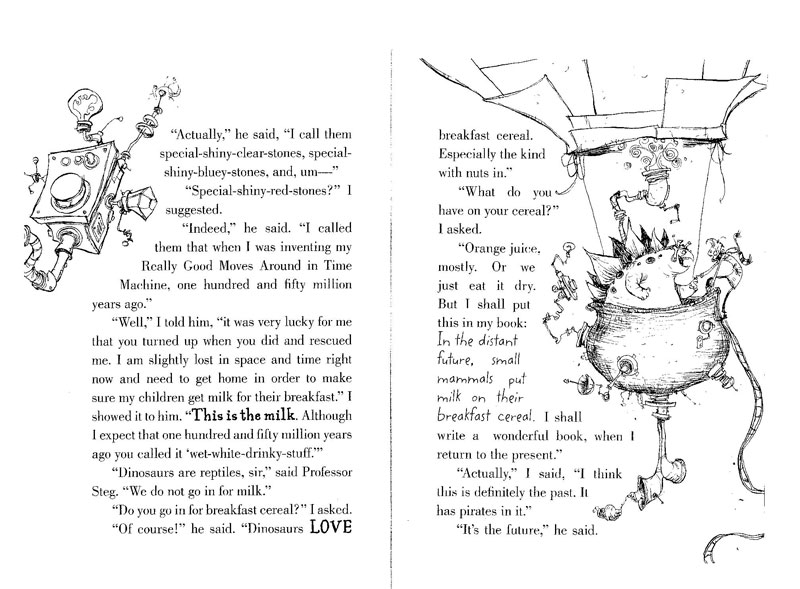 “Actually,” he said, “I call them
special-shiny-clear-stones, special-
shiny-bluey-stones, and, um—”
“Special-shiny-red-stones?” I
suggested.
“Indeed,” he said. “I called
them that when I was inventing my
Really Good Moves Around in Time
Machine, one hundred and fifty million
years ago.”
“Well,” I told him, “it was very lucky for me
that you turned up when you did and rescued
me. I am slightly lost in space and time right
now and need to get home in order to make
sure my children get milk for their breakfast.” I
showed it to him. “This is the milk. Although
I expect that one hundred and fifty million years
ago you called it ‘wet-white-drinky-stuff.’”
“Dinosaurs are reptiles, sir,” said Professor
Steg. “We do not go in for milk.”
“Do you go in for breakfast cereal?” I asked.
“Of course!” he said. “Dinosaurs LOVE
breakfast cereal.
Especially the kind
with nuts in.”
“What do you
have on your cereal?”
I asked.
“Orange juice,
mostly. Or we
just eat it dry.
But I shall put
this in my book:
In the distant
future, small
mammals put
milk on their
breakfast cereal. I shall
write a wonderful book, when I
return to the present.”
“Actually,” I said, “I think
this is definitely the past. It
has pirates in it.”
“It’s the future,” he said.